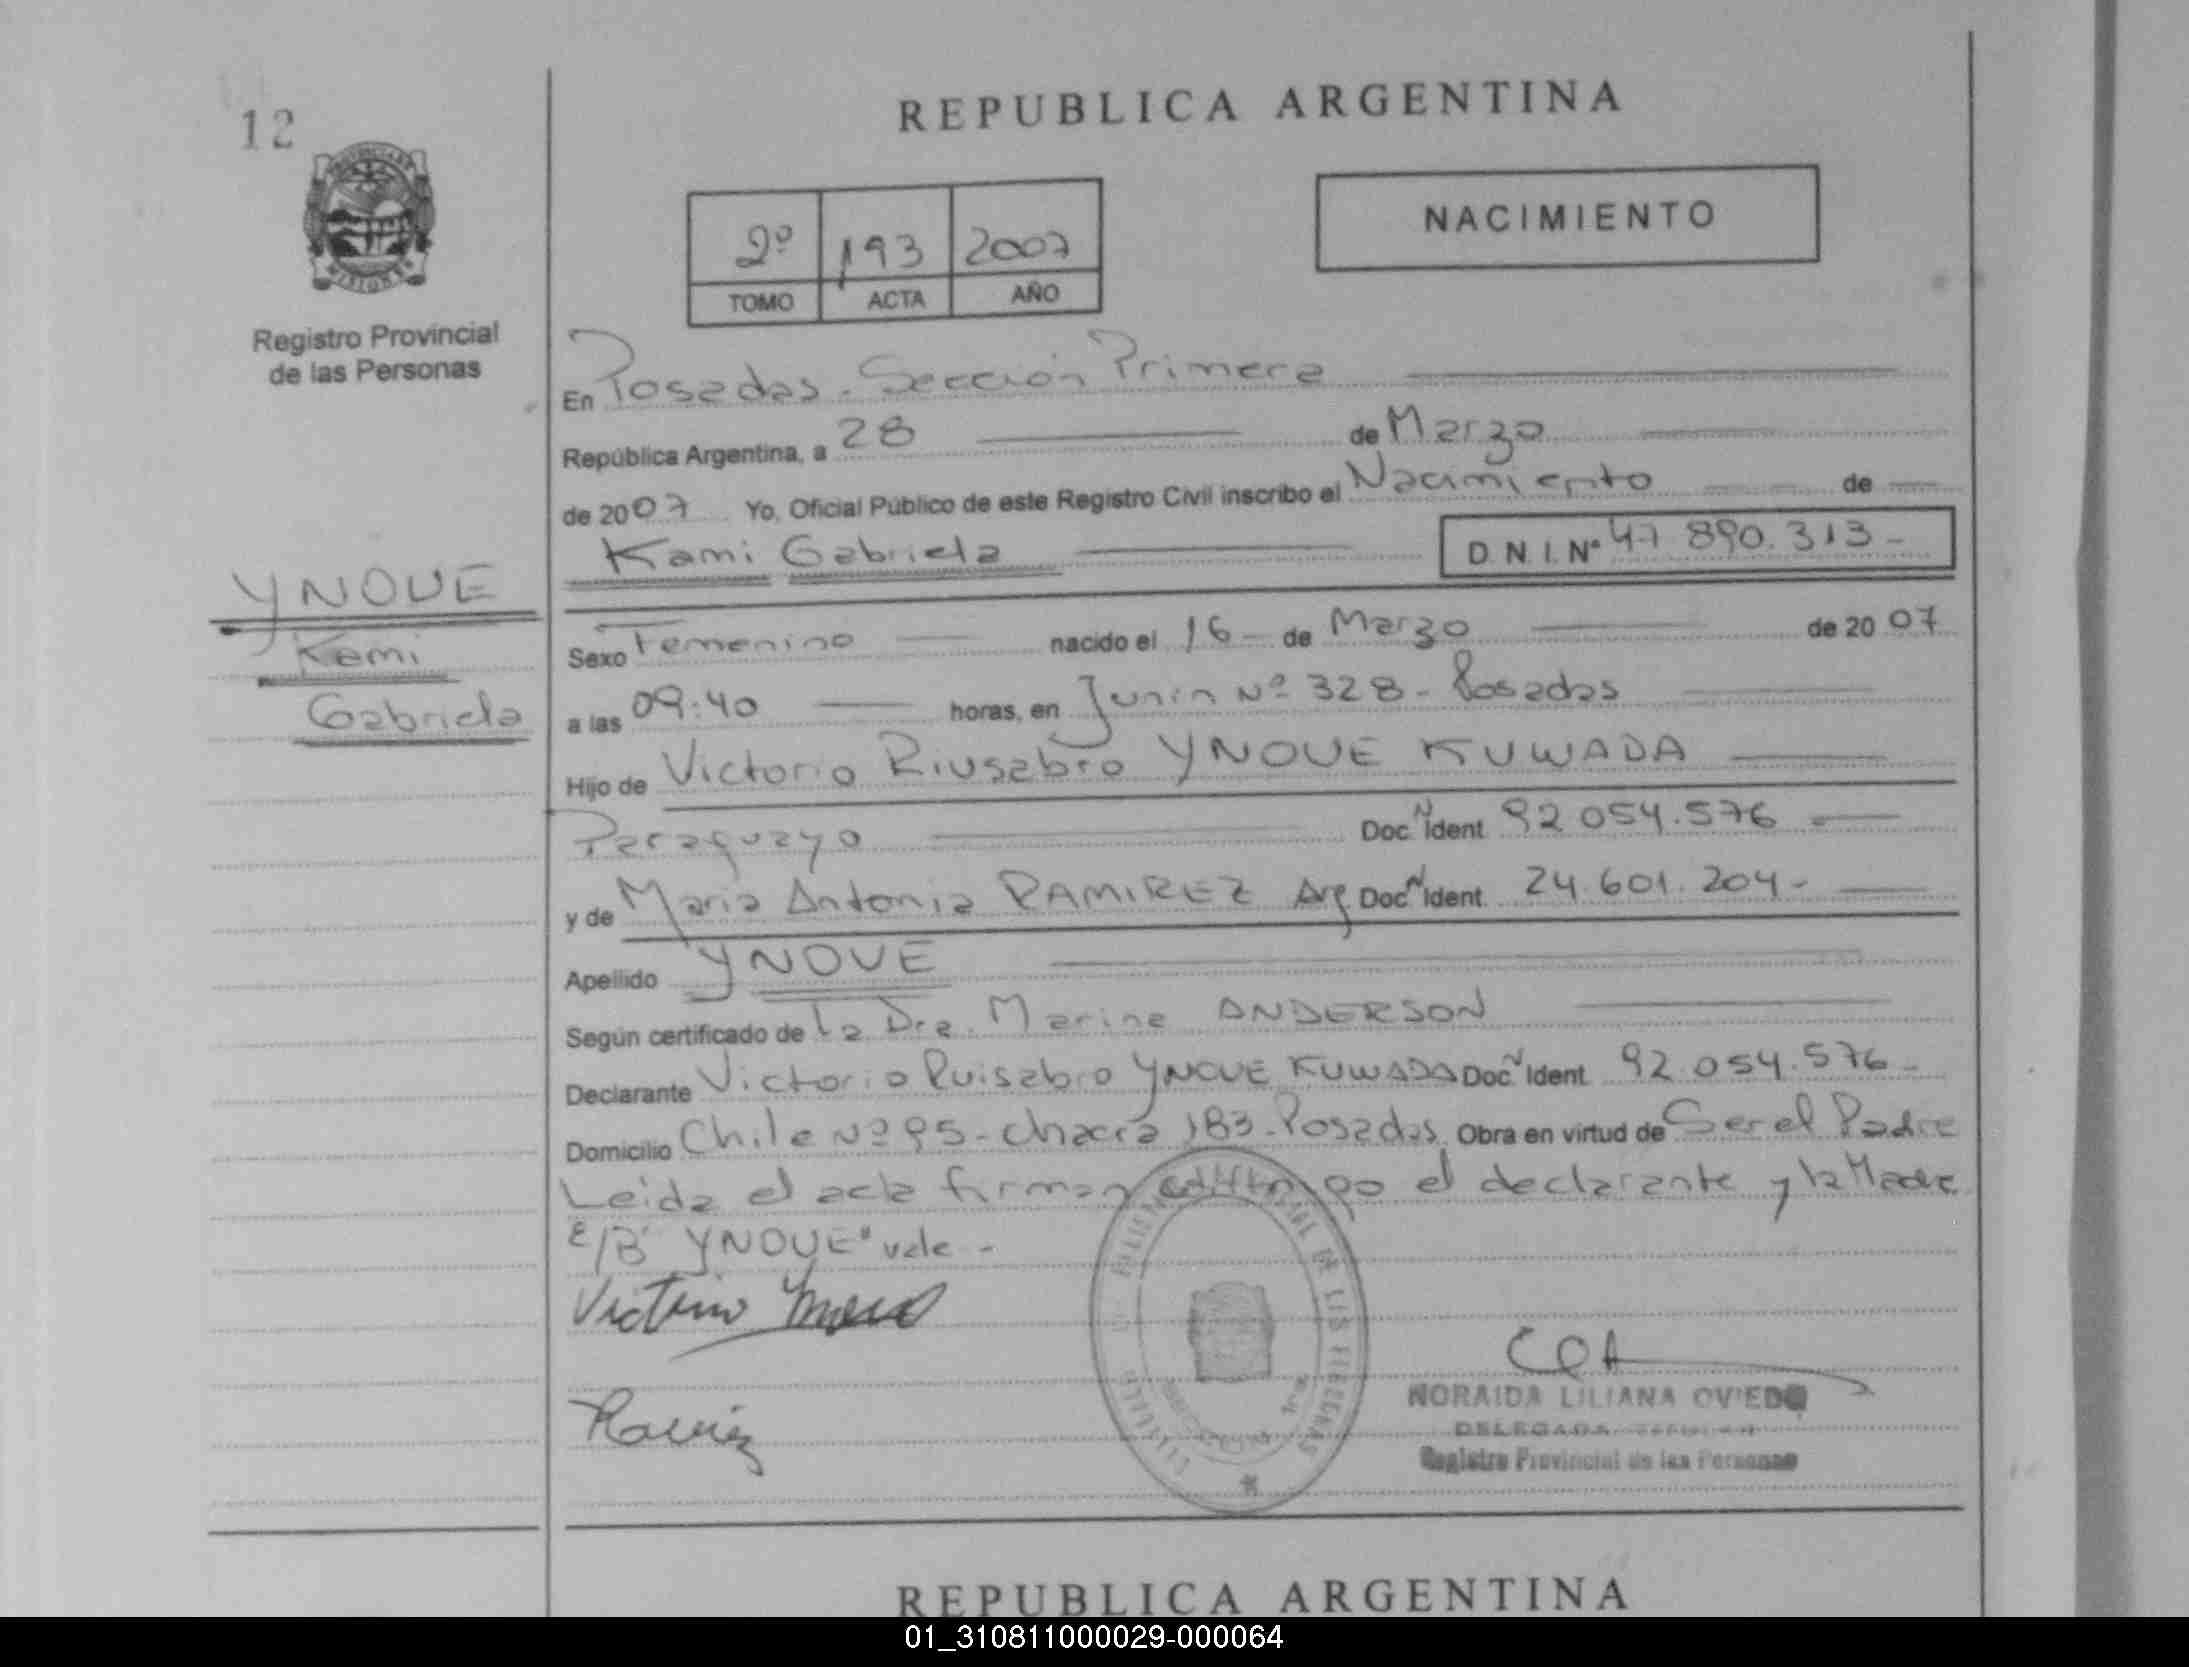 12
Registro Provincial
de las Personas
YNOUE
Kami
Gabriela
REPUBLICA ARGENTINA
2º 193 2007
TOMO ACTA AÑO
NACIMIENTO
En Posadas - Sección Primera
República Argentina, a 28 de Marzo
de 2007 Yo, Oficial Público de este Registro Civil inscribo el Nacimiento de
Kami Gabriela D.N.I. Nº 47 890.313-
Sexo Femenino nacido el 16 de Marzo de 2007
a las 09:40 horas, en Junin Nº 328 - Posadas
Hijo de Victorio Riusabro YNOUE KUWADA
Paraguayo Doc. Ident 92 054.576
y de Maria Antonia RAMIREZ Arg Doc. Ident. 24.601.204-
Apellido YNOUE
Según certificado de la Dra. Marina ANDERSON
Declarante Victorio Ruisabro YNOUE KUWADA Doc. Ident 92.054.576-
Domicilio Chile Nº 95 - chacra 183 - Posadas Obra en virtud de Ser el Padre
Leida el acta firman conmigo el declarante y la Madre
E/B "YNOUE" vale -
Victorio Ynoue
Ramirez
NORAIDA LILIANA OVIEDO
DELEGADA
Registro Provincial de las Personas
REPUBLICA ARGENTINA
01_310811000029-000064